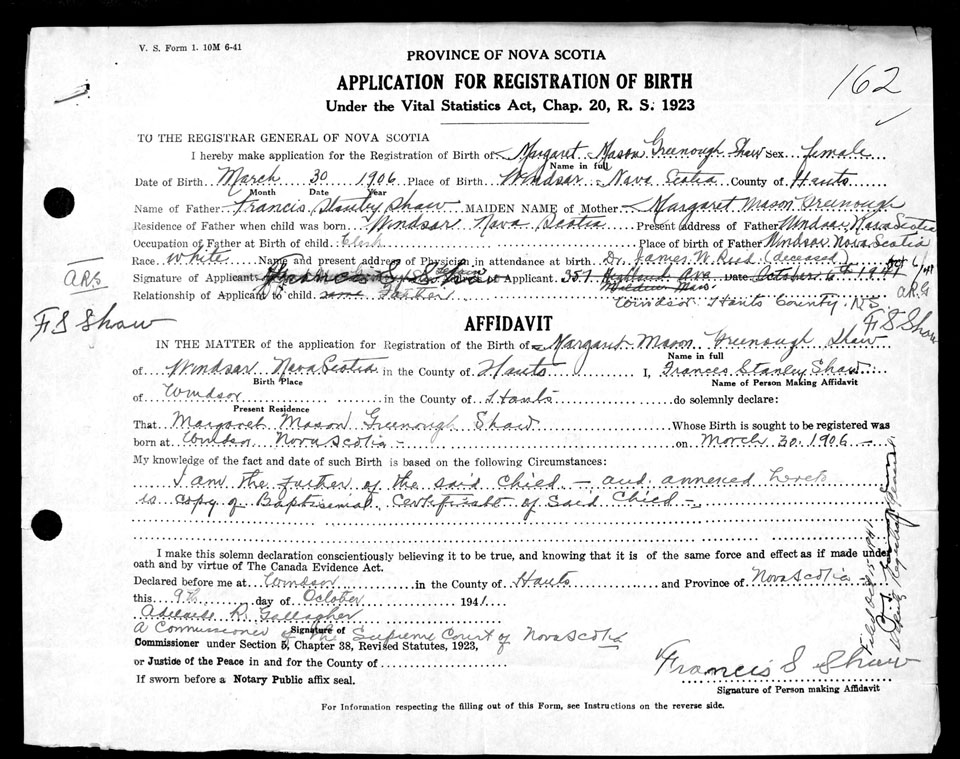 V. S. Form 1. 10M 6-41
PROVINCE OF NOVA SCOTIA
APPLICATION FOR REGISTRATION OF BIRTH
162
Under the Vital Statistics Act, Chap. 20, R. S. 1923
TO THE REGISTRAR GENERAL OF NOVA SCOTIA
I hereby make application for the Registration of Birth of Margaret Mason Greenough Shaw Sex female
Name in full
Date of Birth March 30 1906 Place of Birth Windsor Nova Scotia County of Hants
Month Date Year
Name of Father Francis Stanley Shaw MAIDEN NAME of Mother Margaret Mason Greenough
Residence of Father when child was born Windsor Nova Scotia Present address of Father Windsor Nova Scotia
Occupation of Father at Birth of child Clerk Place of birth of Father Windsor Nova Scotia
Race White Name and present address of Physician in attendance at birth Dr. James W. Reid (deceased)
Signature of Applicant Francis S Shaw of Applicant 357 Highland Ave Date October 6th 1941
A.R.G. A.R.G
Relationship of Applicant to child same Father Windsor Hants County. N.S
F S Shaw F S Shaw
AFFIDAVIT
IN THE MATTER of the application for Registration of the Birth of Margaret Mason Greenough Shaw
Name in full
of Windsor Nova Scotia in the County of Hants I, Francis Stanley Shaw
Birth Place Name of Person Making Affidavit
of Windsor in the County of Hants do solemnly declare:
Present Residence
That Margaret Mason Greenough Shaw Whose Birth is sought to be registered was
born at Windsor Nova Scotia - on March 30. 1906 -
My knowledge of the fact and date of such Birth is based on the following Circumstances:
I am the father of the said Child - and annexed hereto
is copy of Baptismal Certificate of Said Child -
I make this solemn declaration conscientiously believing it to be true, and knowing that it is of the same force and effect as if made under
oath and by virtue of The Canada Evidence Act.
Declared before me at Windsor in the County of Hants and Province of Nova Scotia
this 9th day of October 1941
Adelaide R. Gallagher
A Commissioner of the Supreme Court of Nova Scotia
Signature of
Commissioner under Section 5, Chapter 38, Revised Statutes, 1923,
or Justice of the Peace in and for the County of
Francis S Shaw
If sworn before a Notary Public affix seal.
Signature of Person making Affidavit
For Information respecting the filling out of this Form, see Instructions on the reverse side.
Filed Oct 15 1941.